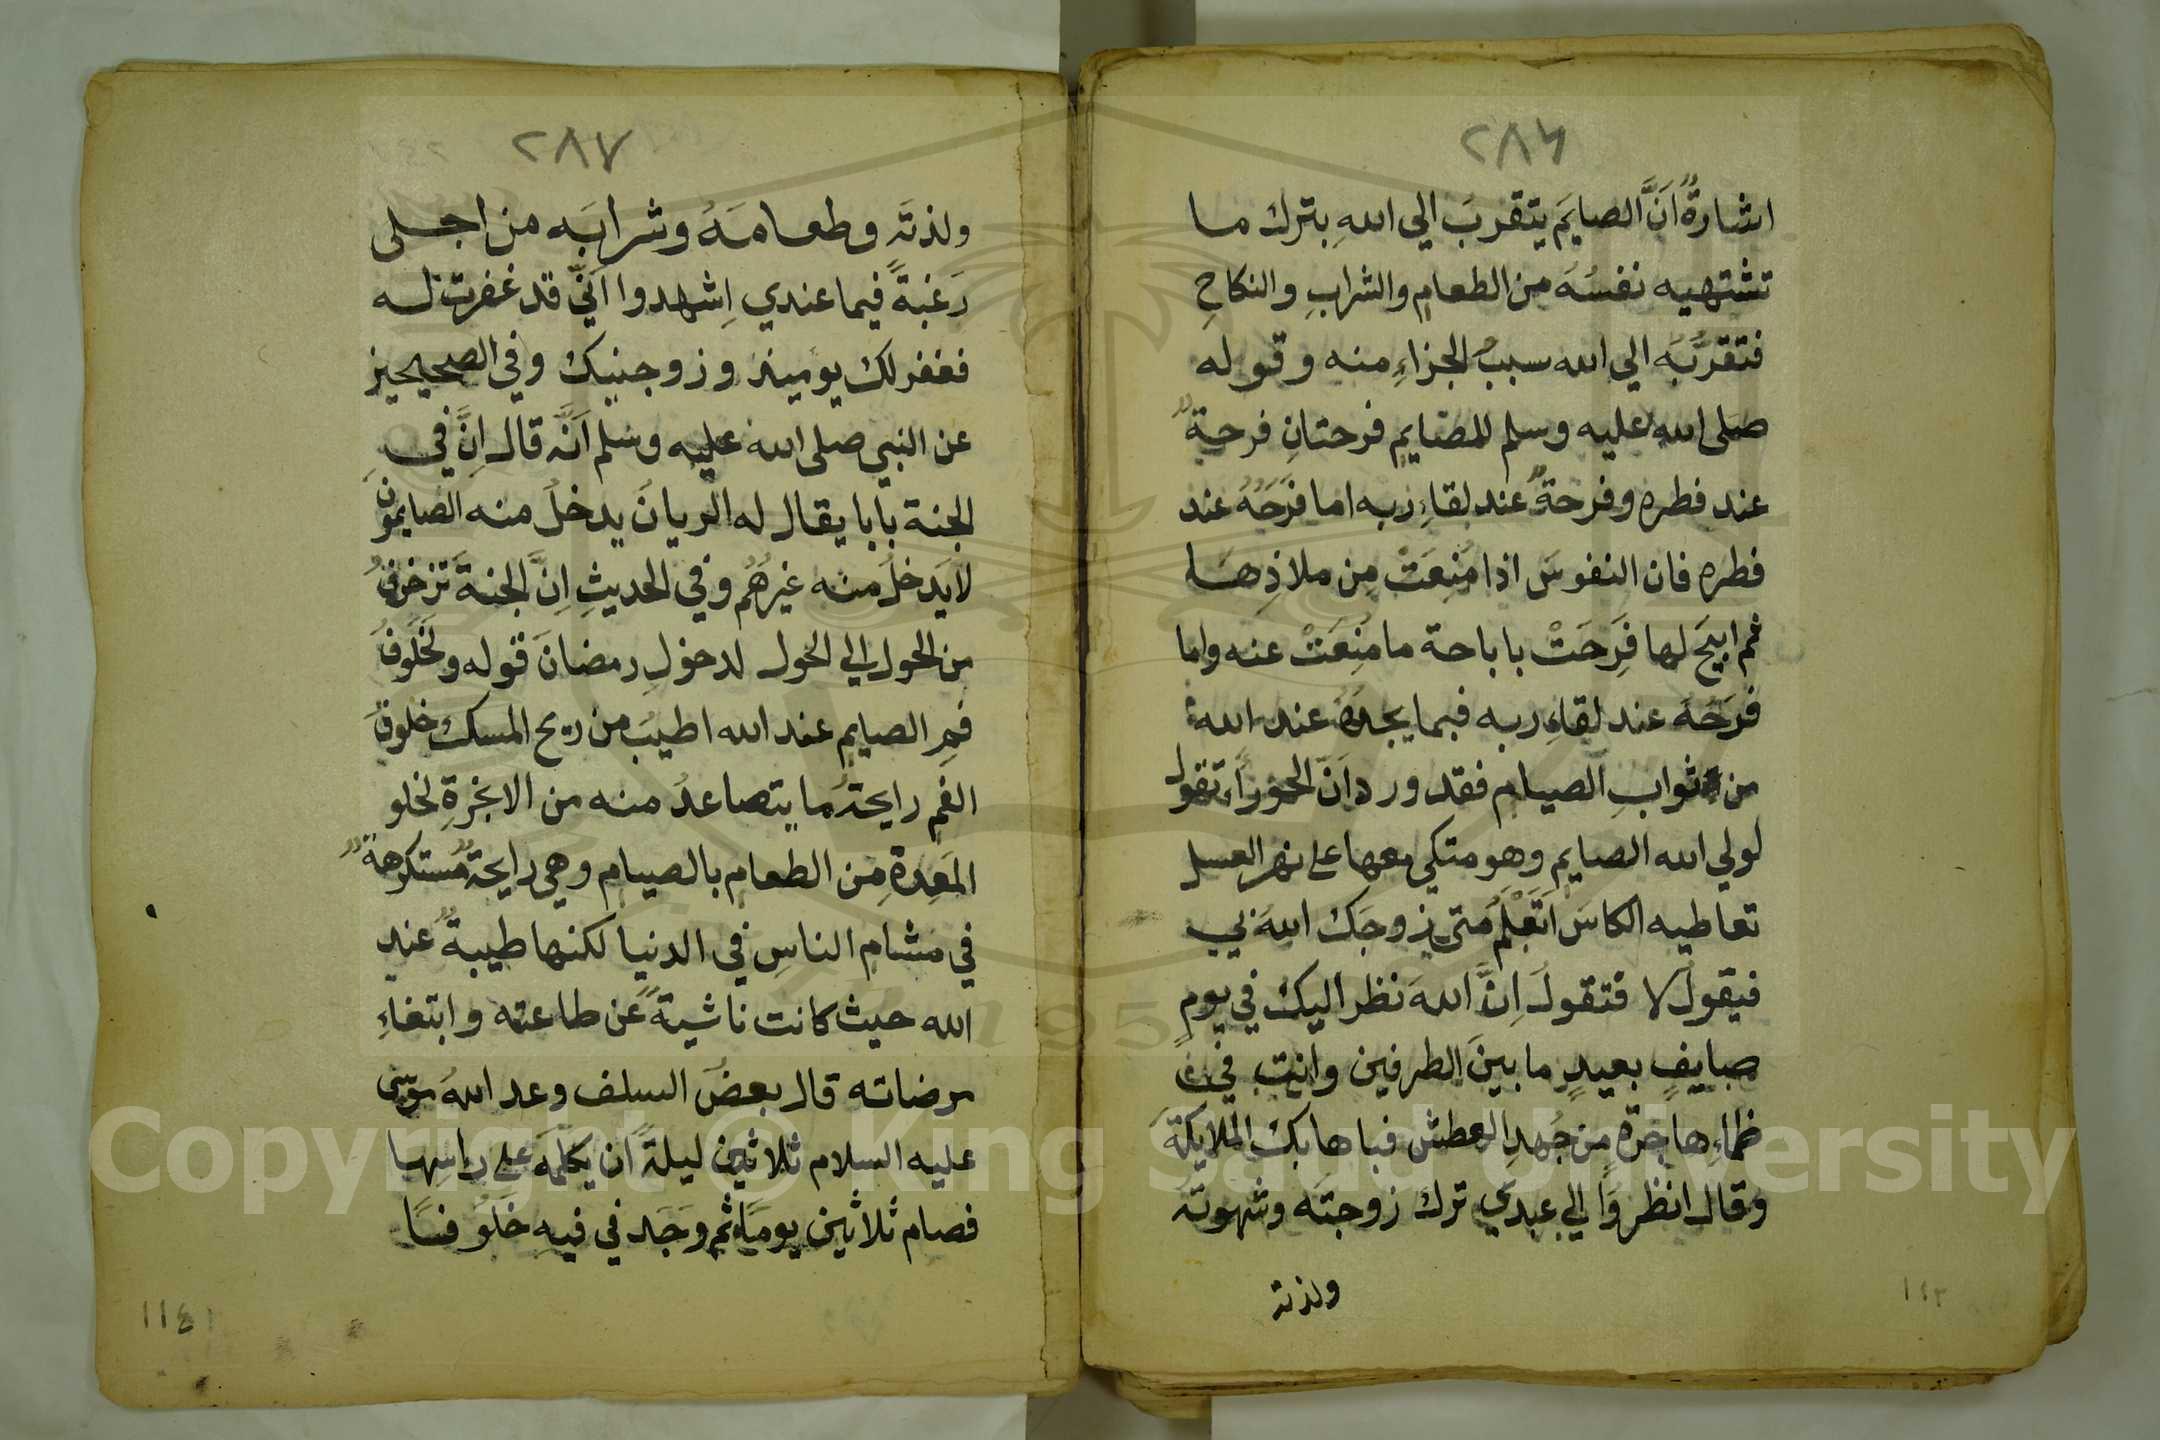 ٢٨٦
اشارةٌ اَنَّ الصايمَ يتقربَ الي اللهِ بترك ما
تشتهيه نفسُهُ من الطعامِ والشرابِ والنكاحِ
فتقرُّبُه الي الله سببُ الجزاءِ منه وقوله
صلى الله عليه وسلم للصايمِ فرحتانِ فرحةٌ
عند فطره وفرحةٌ عند لقاءِ ربه اما فَرَحَهُ عند
فطره فان النفوسَ اذا مُنِعَتْ مِن ملاذِها
ثم ابيحَ لها فَرِحَتْ باباحة ما مُنِعَتْ عنه واما
فرَحَهُ عند لقاءِ ربه فبما يجدُهُ عند الله
من ثوابِ الصيام فقد ورد اَنَّ الحوراَءَ تقول
لولي الله الصايم وهو متكي معها على نهر العسل
تعاطيه الكاسَ اَتَعْلَمُ متى زوجَك اللهَ بي
فيقولُ لا فتقولُ اِنَّ اللهَ نظر اليك في يومٍ
صايفٍ بعيدٍ ما بينَ الطرفين وانت في
ظماءِ هاجَرةٍ من جُهدِ العطش فباها بك الملايكةَ
وقال انظروا الي عبدي ترك زوجتَه وشهوتَه
ولذته
١٤٣
٢٨٧
ولذتَه وطعامَهُ وشرابَه من اجلى
رَغبةً فيما عندي اِشهدوا اَنّي قد غفرت له
فغفر لك يوميذ وزوجنيك وفي الصحيحين
عن النبي صلى الله عليه وسلم اَنَّه قال اِنَّ في
الجنة بابا يقال له الريانَ يدخلُ منه الصايمون
لا يَدخلُ منه غيرُهُم وفي الحديثِ اِنَّ الجنةَ تزخرفُ
من الحول الي الحول لدخولِ رمضانَ قوله ولَخَلُوفُ
فمِ الصايمِ عند الله اطيبُ من ريح المسك خلوفُ
الفم رايحةُ ما يتصاعدُ منه من الابخرةِ لخلو
المَعِدةِ مِن الطعام بالصيام وهي رايحةٌ مستكرهةٌ
في مشام الناسِ في الدنيا لكنها طيبةٌ عند
الله حيث كانت ناشيةً عن طاعته وابتغاءِ
مرضاته قال بعضُ السلف وعد اللهُ موسى
عليه السلام ثلاثين ليلةً ان يكلمَه على راسِها
فصام ثلاثين يومًا ثم وجَد في فيهِ خَلُوفًا
Copyright © King Saud University
1957